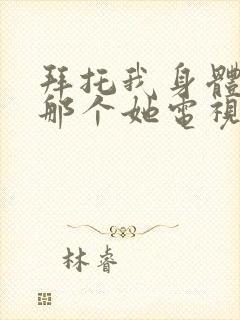 拜托我身體
那个她電視
林睿